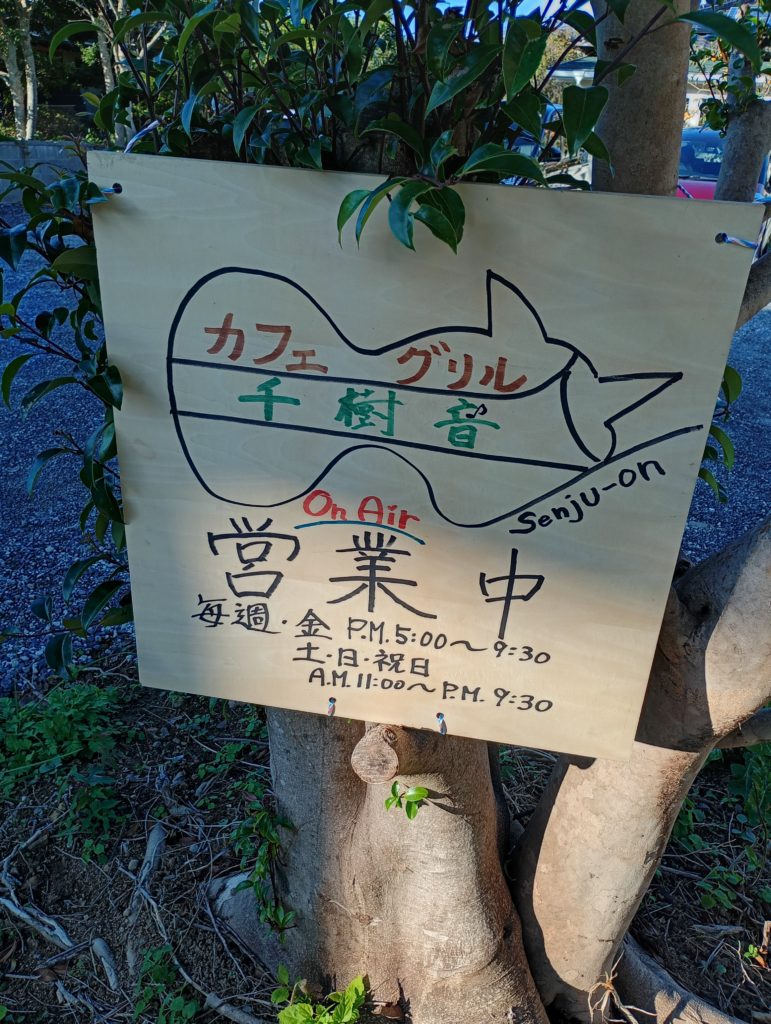 カフェ グリル
千樹音
senju-on
On Air
営業中
毎週・金 P.M. 5:00～9:30
土・日・祝日
A.M. 11:00～P.M. 9:30